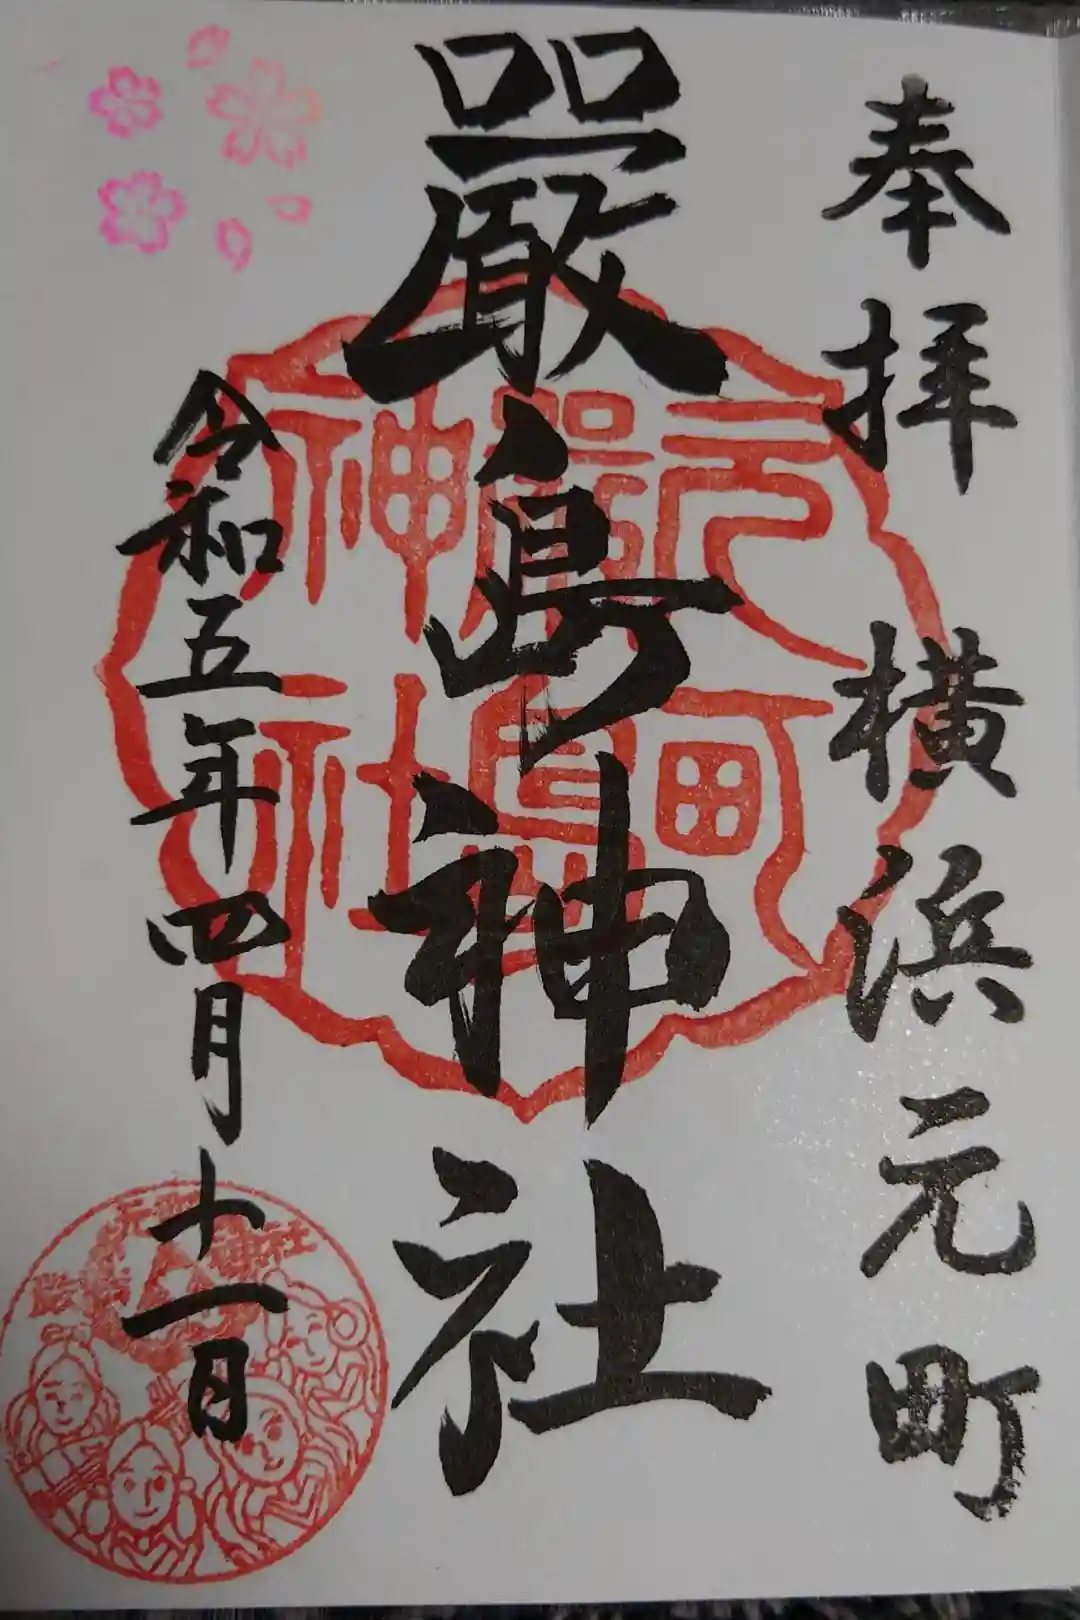 奉拝 横浜元町
元町
嚴島
神社
嚴島神社
令和五年四月十一日
元町
嚴島神社